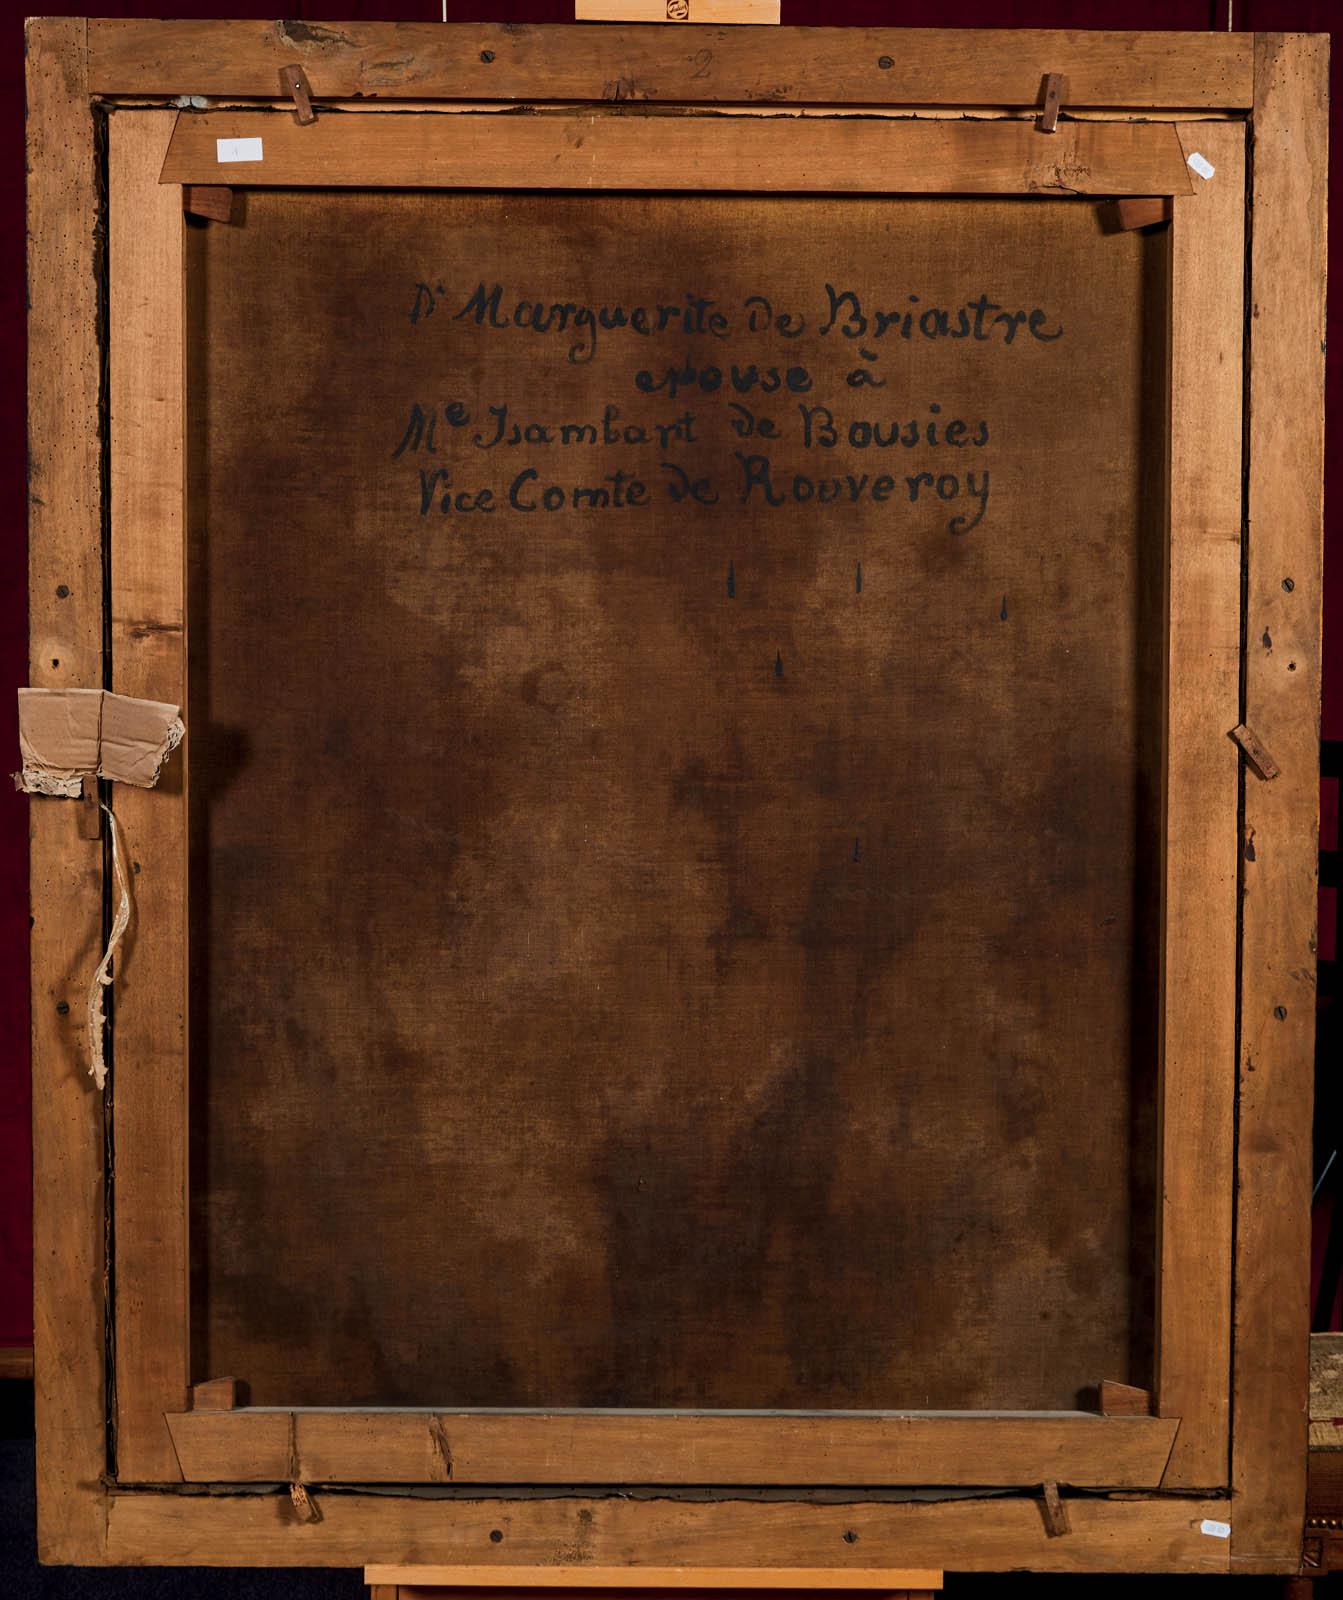 2
De Marguerite de Briastre
epouse à
Me Isambart de Bousies
Vice Comte de Rouveroy